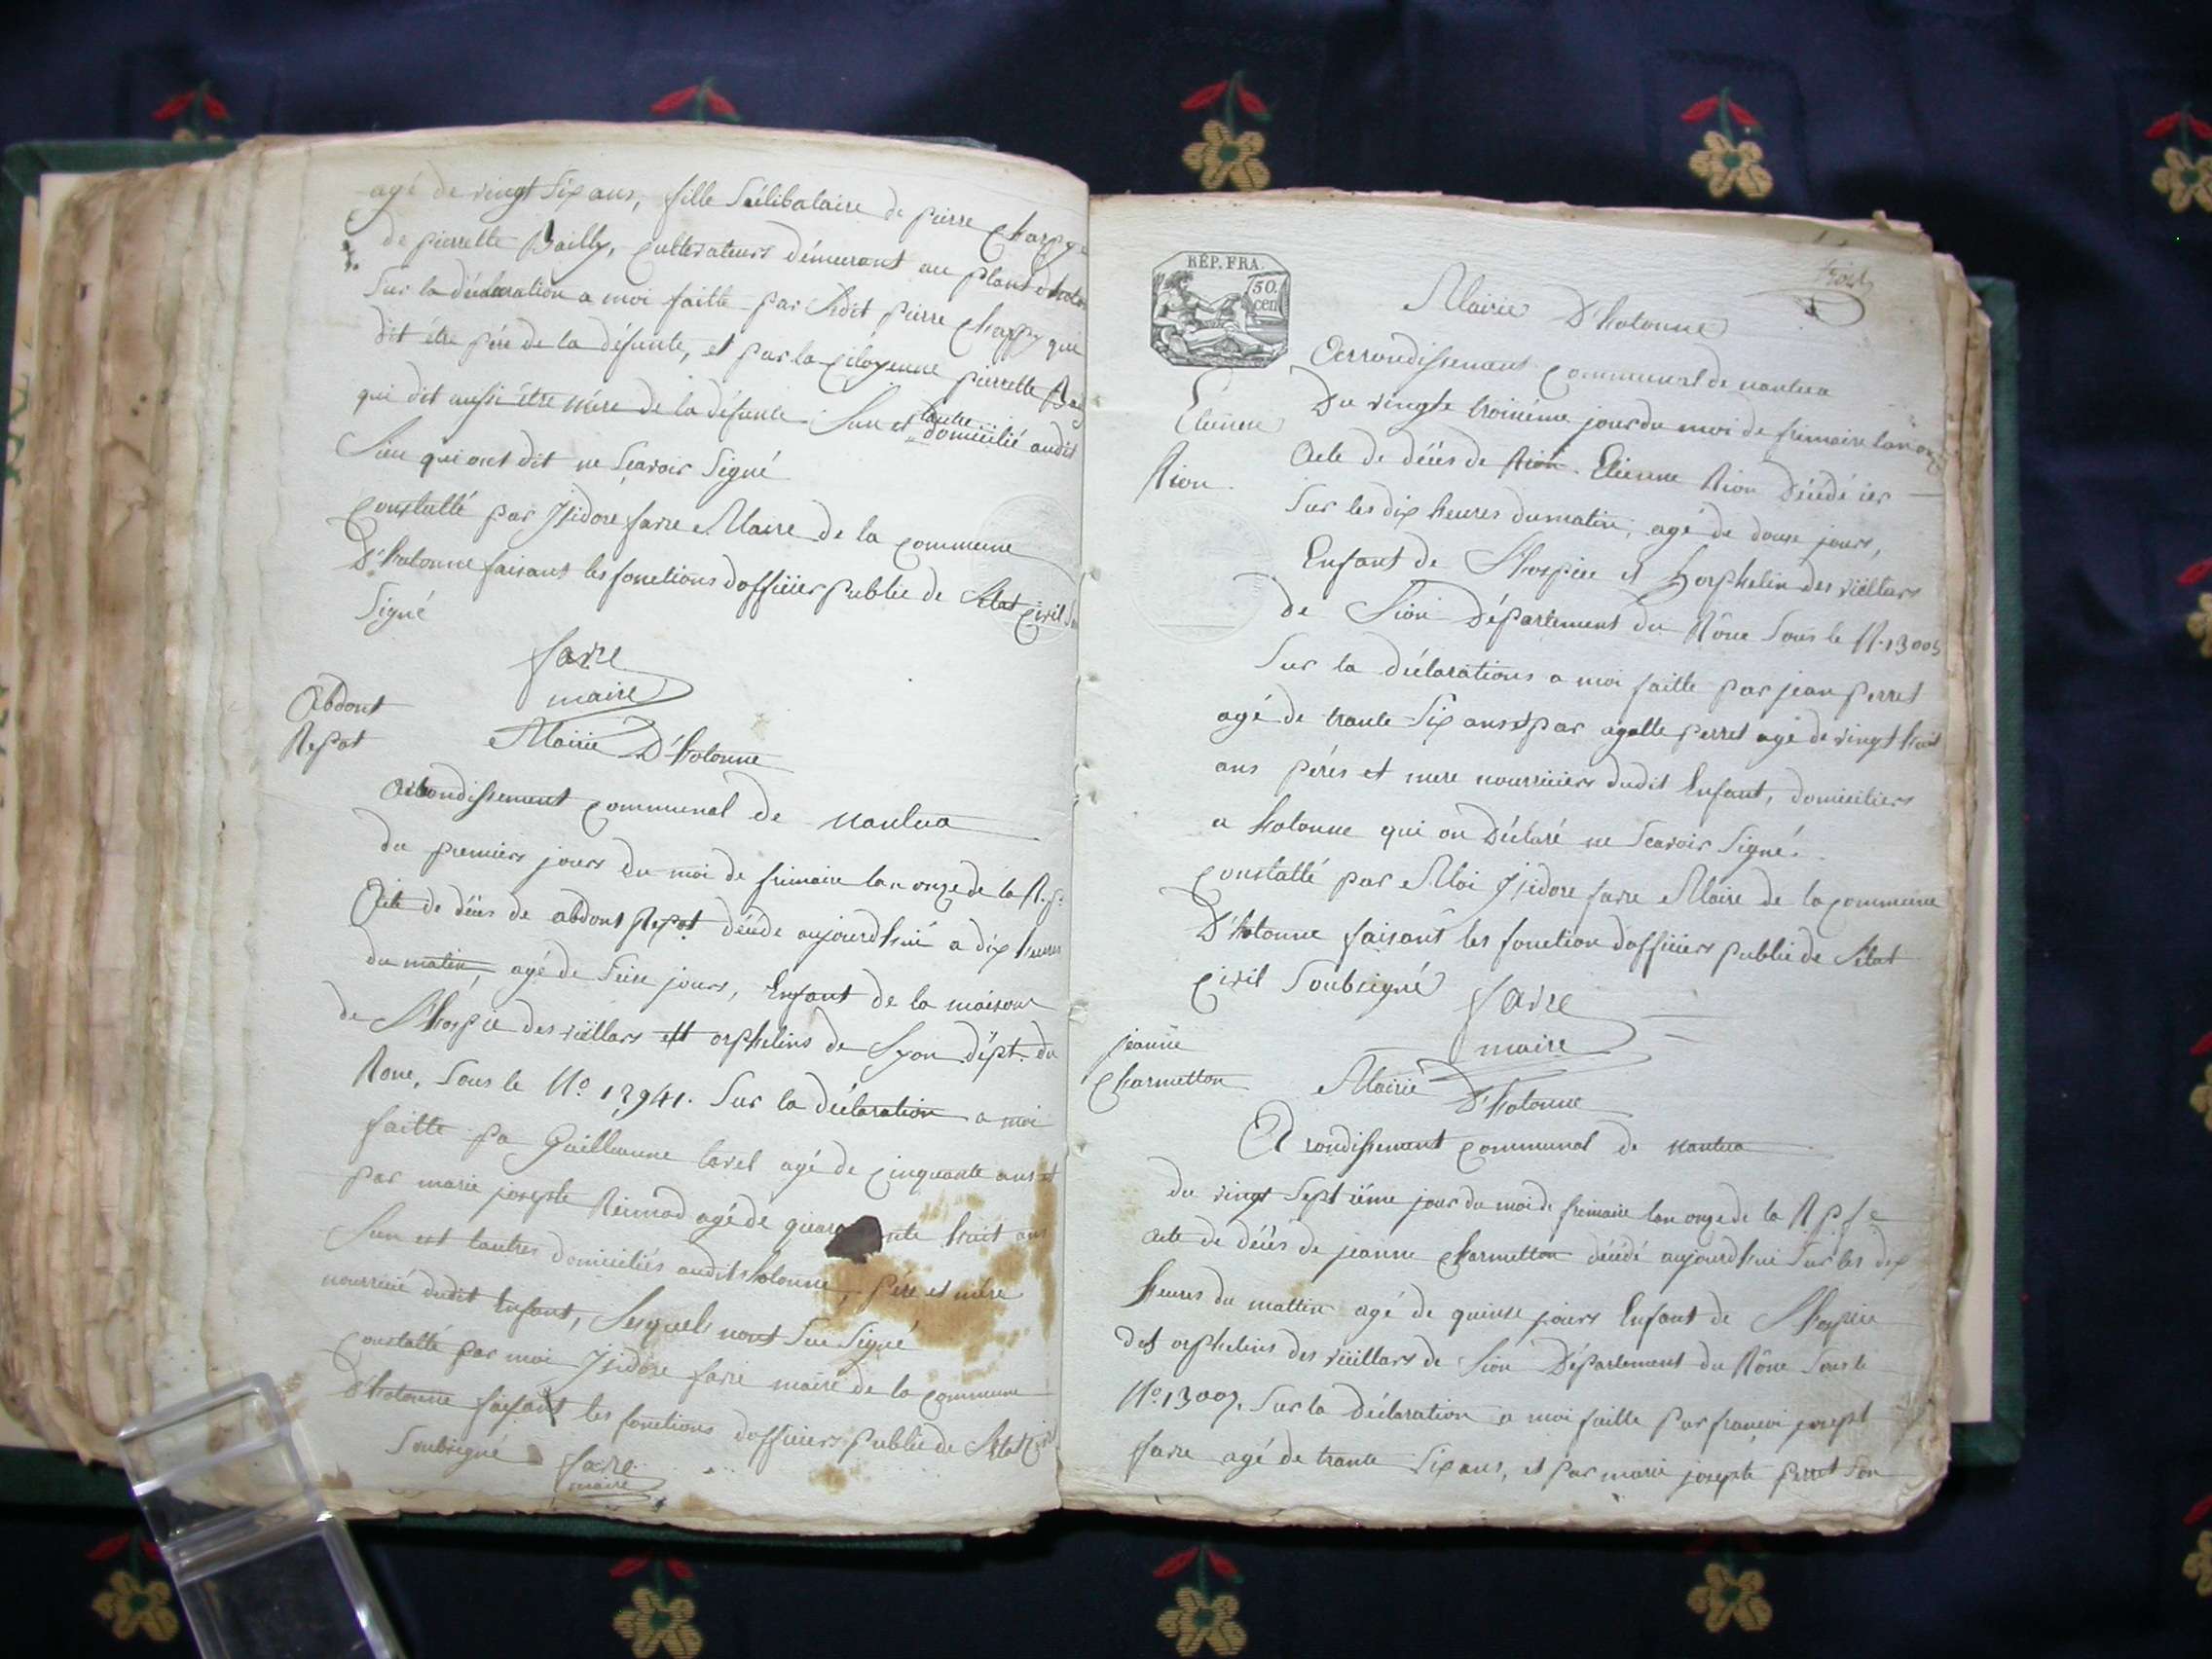 agé de vingt Six ans, fille Sélibataire de pierre Chappy
de pierrette Bailly, Cultivateurs démeurant au plans
Sur la déclaration a moi faitte par Ledit pierre Chappy qui
dit étre pére de la défunte, et par la Citoyenne pierrette
qui dit aussi étre mére de la défunte Lun et lautre domicilié audit
Lieu qui ont dit ne Scavoir Signé
Constatté par Isidore favre Maire de la Commune
D'hotonne faisant les fonctions dofficier public de Létat Civil
Signé
favre
maire
Abdont
Repot
Mairie D'hotonne
Arrondissement Communal de nantua
du premiers jours du moi de frimaire lan onze de la R. f.
Acte de déces de abdont Repot décéde aujourdhui a dix heures
du matin, agé de Seise jours, Enfant de la maison
de Lhospice des viellars et orphelins de Lyon dépt. du
Rone, Sous le No 12941. Sur la déclaration a moi
faitte pa Guillaume agé de Cinquante ans et
par marie josephte agé de quarante huit ans
Lun et lautres domiciliés audit hotonne, pére et mére
nourricié dudit Enfant, Lesquels nont Sue Signé
Constatté par moi Isidore favre maire de la Commune
d'hotonne faisant les fonctions dofficiers public de Létat Civil
Soubsigné favre
maire
RÉP. FRA.
50.
cen
Mairie D'hotonne
Arrondissement Communal de nantua
Etienne
Rion
Du vingte troisiéme jour du moi de frimaire lan onze
Acte de déces de Rion Etienne Rion Décédé ier
Sur les dix heures du matin, agé de douse jours,
Enfant de Lhospice et horphelin des viellars
de Lion Département du Rône Sous le N. 13005
Sur la déclarations a moi faitte par jean perret
agé de trante Six ans et par agatte perret agé de vingt huit
ans péres et mere nourriciers dudit Enfant, domiciliers
a hotonne qui on Déclaré ne Scavoir Signé.
Constatté par Moi Isidore favre Maire de la Commune
D'hotonne faisant les fonction dofficiers public de Létat
Civil Soubsigné
favre
maire
jeanne
Charmetton
Mairie D'hotonne
Arondissement Communal de nantua
du vingt Septiéme jour du moi de frimaire lan onze de la R p f e
Acte de décés de jeanne Charmetton décédé aujourdhui Sur les dix
heures du mattin agé de quinse jours Enfant de Lhospice
des orphelins des viellars de Lion Département du Rône Sous le
No. 13007. Sur la déclaration a moi faitte par françoi josept
favre agé de trante Six ans, et par marie josepte perret Son